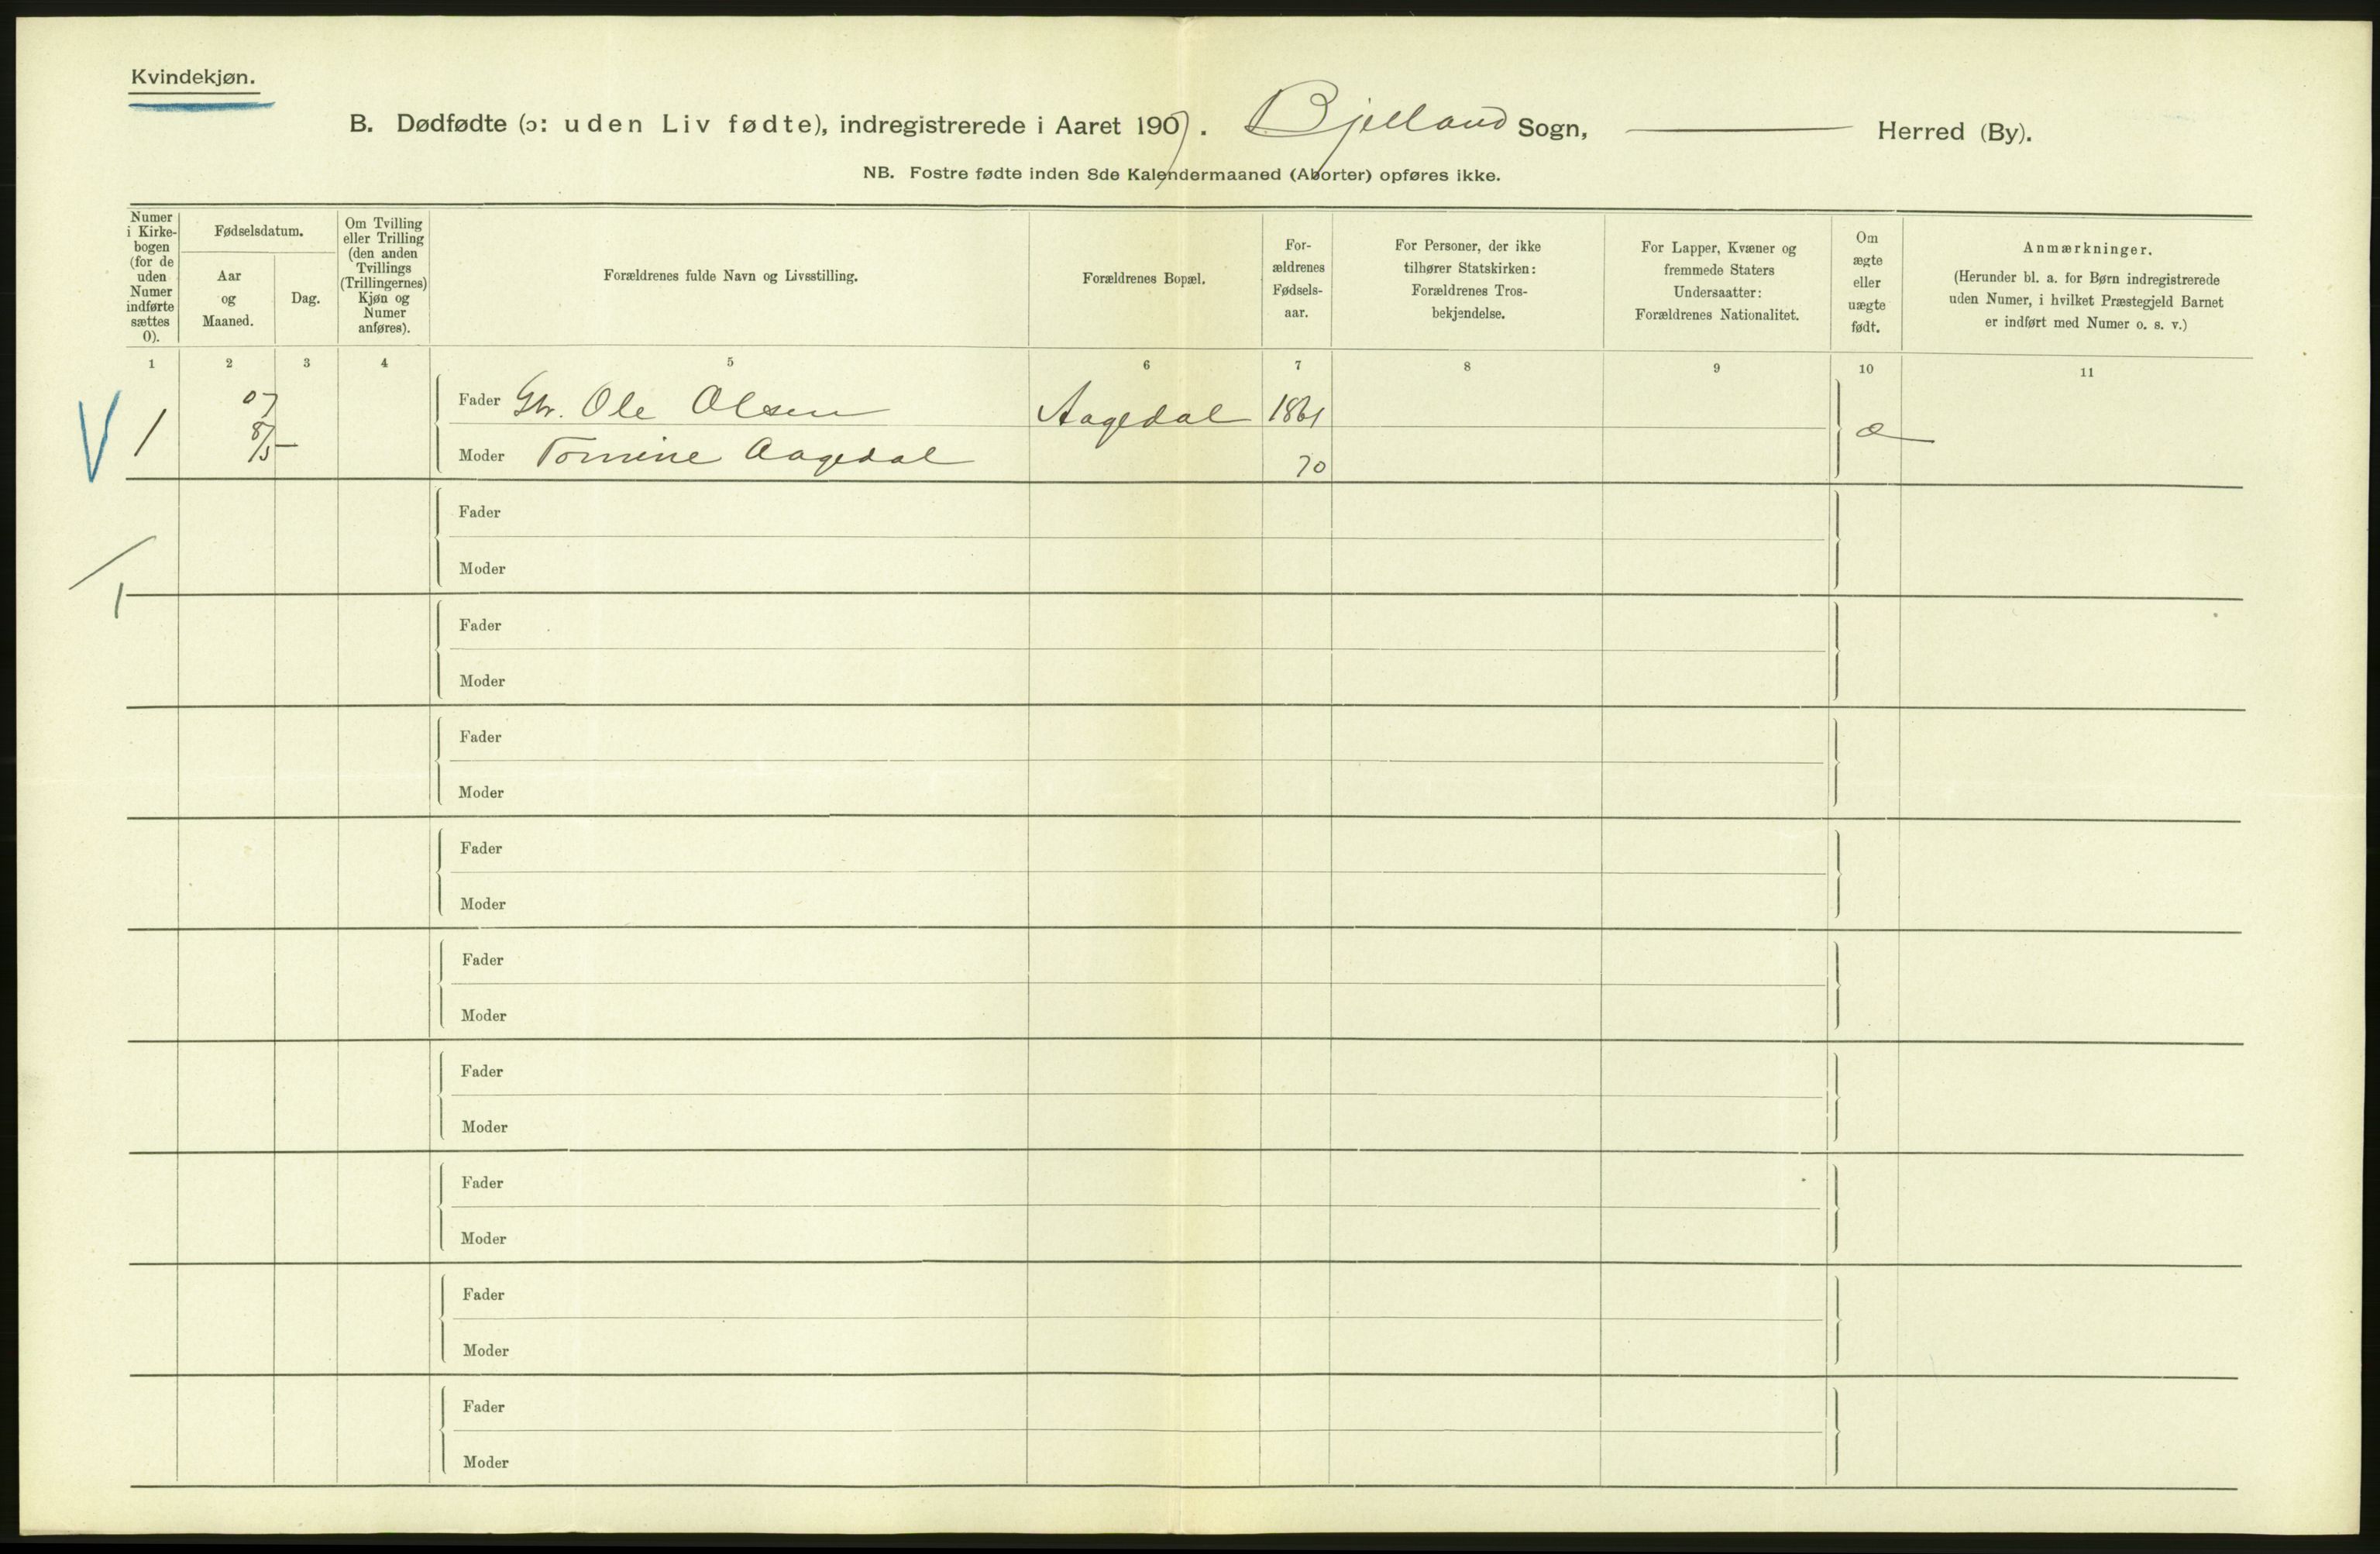 Kvindekjøn.
B. Dødfødte (ɔ: uden Liv fødte), indregistrerede i Aaret 1907. Bjelland Sogn, Herred (By).
NB. Fostre fødte inden 8de Kalendermaaned (Aborter) opføres ikke.
Numer i Kirkebogen (for de uden Numer indførte sættes 0).
Fødselsdatum.
Aar og Maaned.
Dag.
Om Tvilling eller Trilling (den anden Tvillings (Trillingernes) Kjøn og Numer anføres).
Forældrenes fulde Navn og Livsstilling.
Forældrenes Bopæl.
Forældrenes Fødselsaar.
For Personer, der ikke tilhører Statskirken: Forældrenes Trosbekjendelse.
For Lapper, Kvæner og fremmede Staters Undersaatter: Forældrenes Nationalitet.
Om ægte eller uægte født.
Anmærkninger.
(Herunder bl. a. for Børn indregistrerede uden Numer, i hvilket Præstegjeld Barnet er indført med Numer o. s. v.)
1 2 3 4 5 6 7 8 9 10 11
V 1 07 8/5 Fader Gbr. Ole Olsen Aagedal 1861 æ
Moder Tomine Aagedal 70
Fader
Moder
1
Fader
Moder
Fader
Moder
Fader
Moder
Fader
Moder
Fader
Moder
Fader
Moder
Fader
Moder
Fader
Moder